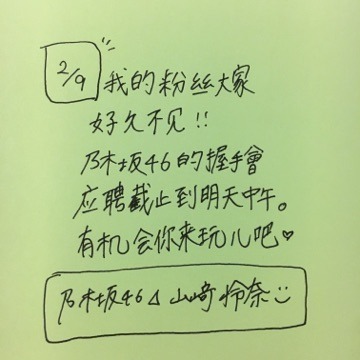 2/9
我的粉丝大家
好久不见!!
乃木坂46的握手會
应聘截止到明天中午。
有机会你来玩儿吧♥
乃木坂46⊿山崎怜奈